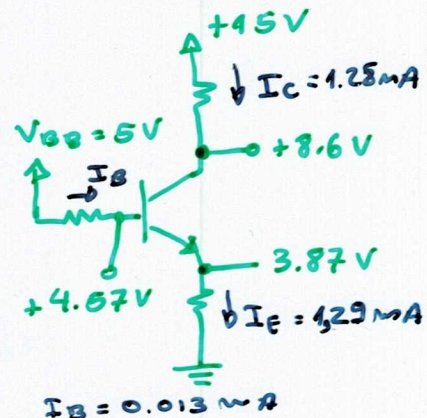 +15V
IC = 1.28mA
VBB = 5V
+8.6V
IB
3.87V
+4.57V
IE = 1,29mA
IB = 0.013mA